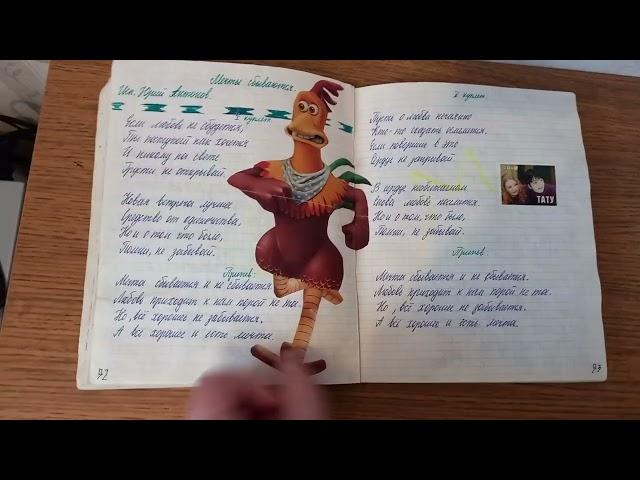 Мечты сбываются.
Исп. Юрий Антонов
I куплет
Если любовь не сбудется,
Ты поступай как хочется
И никому на свете
Грусти не открывай.
Новая встреча лучшее
Средство от одиночества,
Но и о том что было,
Помни, не забывай.
Припев:
Мечты сбываются и не сбываются.
Любовь приходит к нам порой не та.
Но, всё хорошее не забывается.
А всё хорошее и есть мечта.
92
II куплет
Пусть о любви нечаянно
Кто-то гадать осмелится.
Если поверишь в это
Сердце не закрывай.
В сердце
Снова любовь поселится.
Но и о том, что было,
Помни, не забывай.
ТАТУ
Припев:
Мечты сбываются и не сбываются.
Любовь приходит к нам порой не та.
Но, всё хорошее не забывается.
А всё хорошее и есть мечта.
93